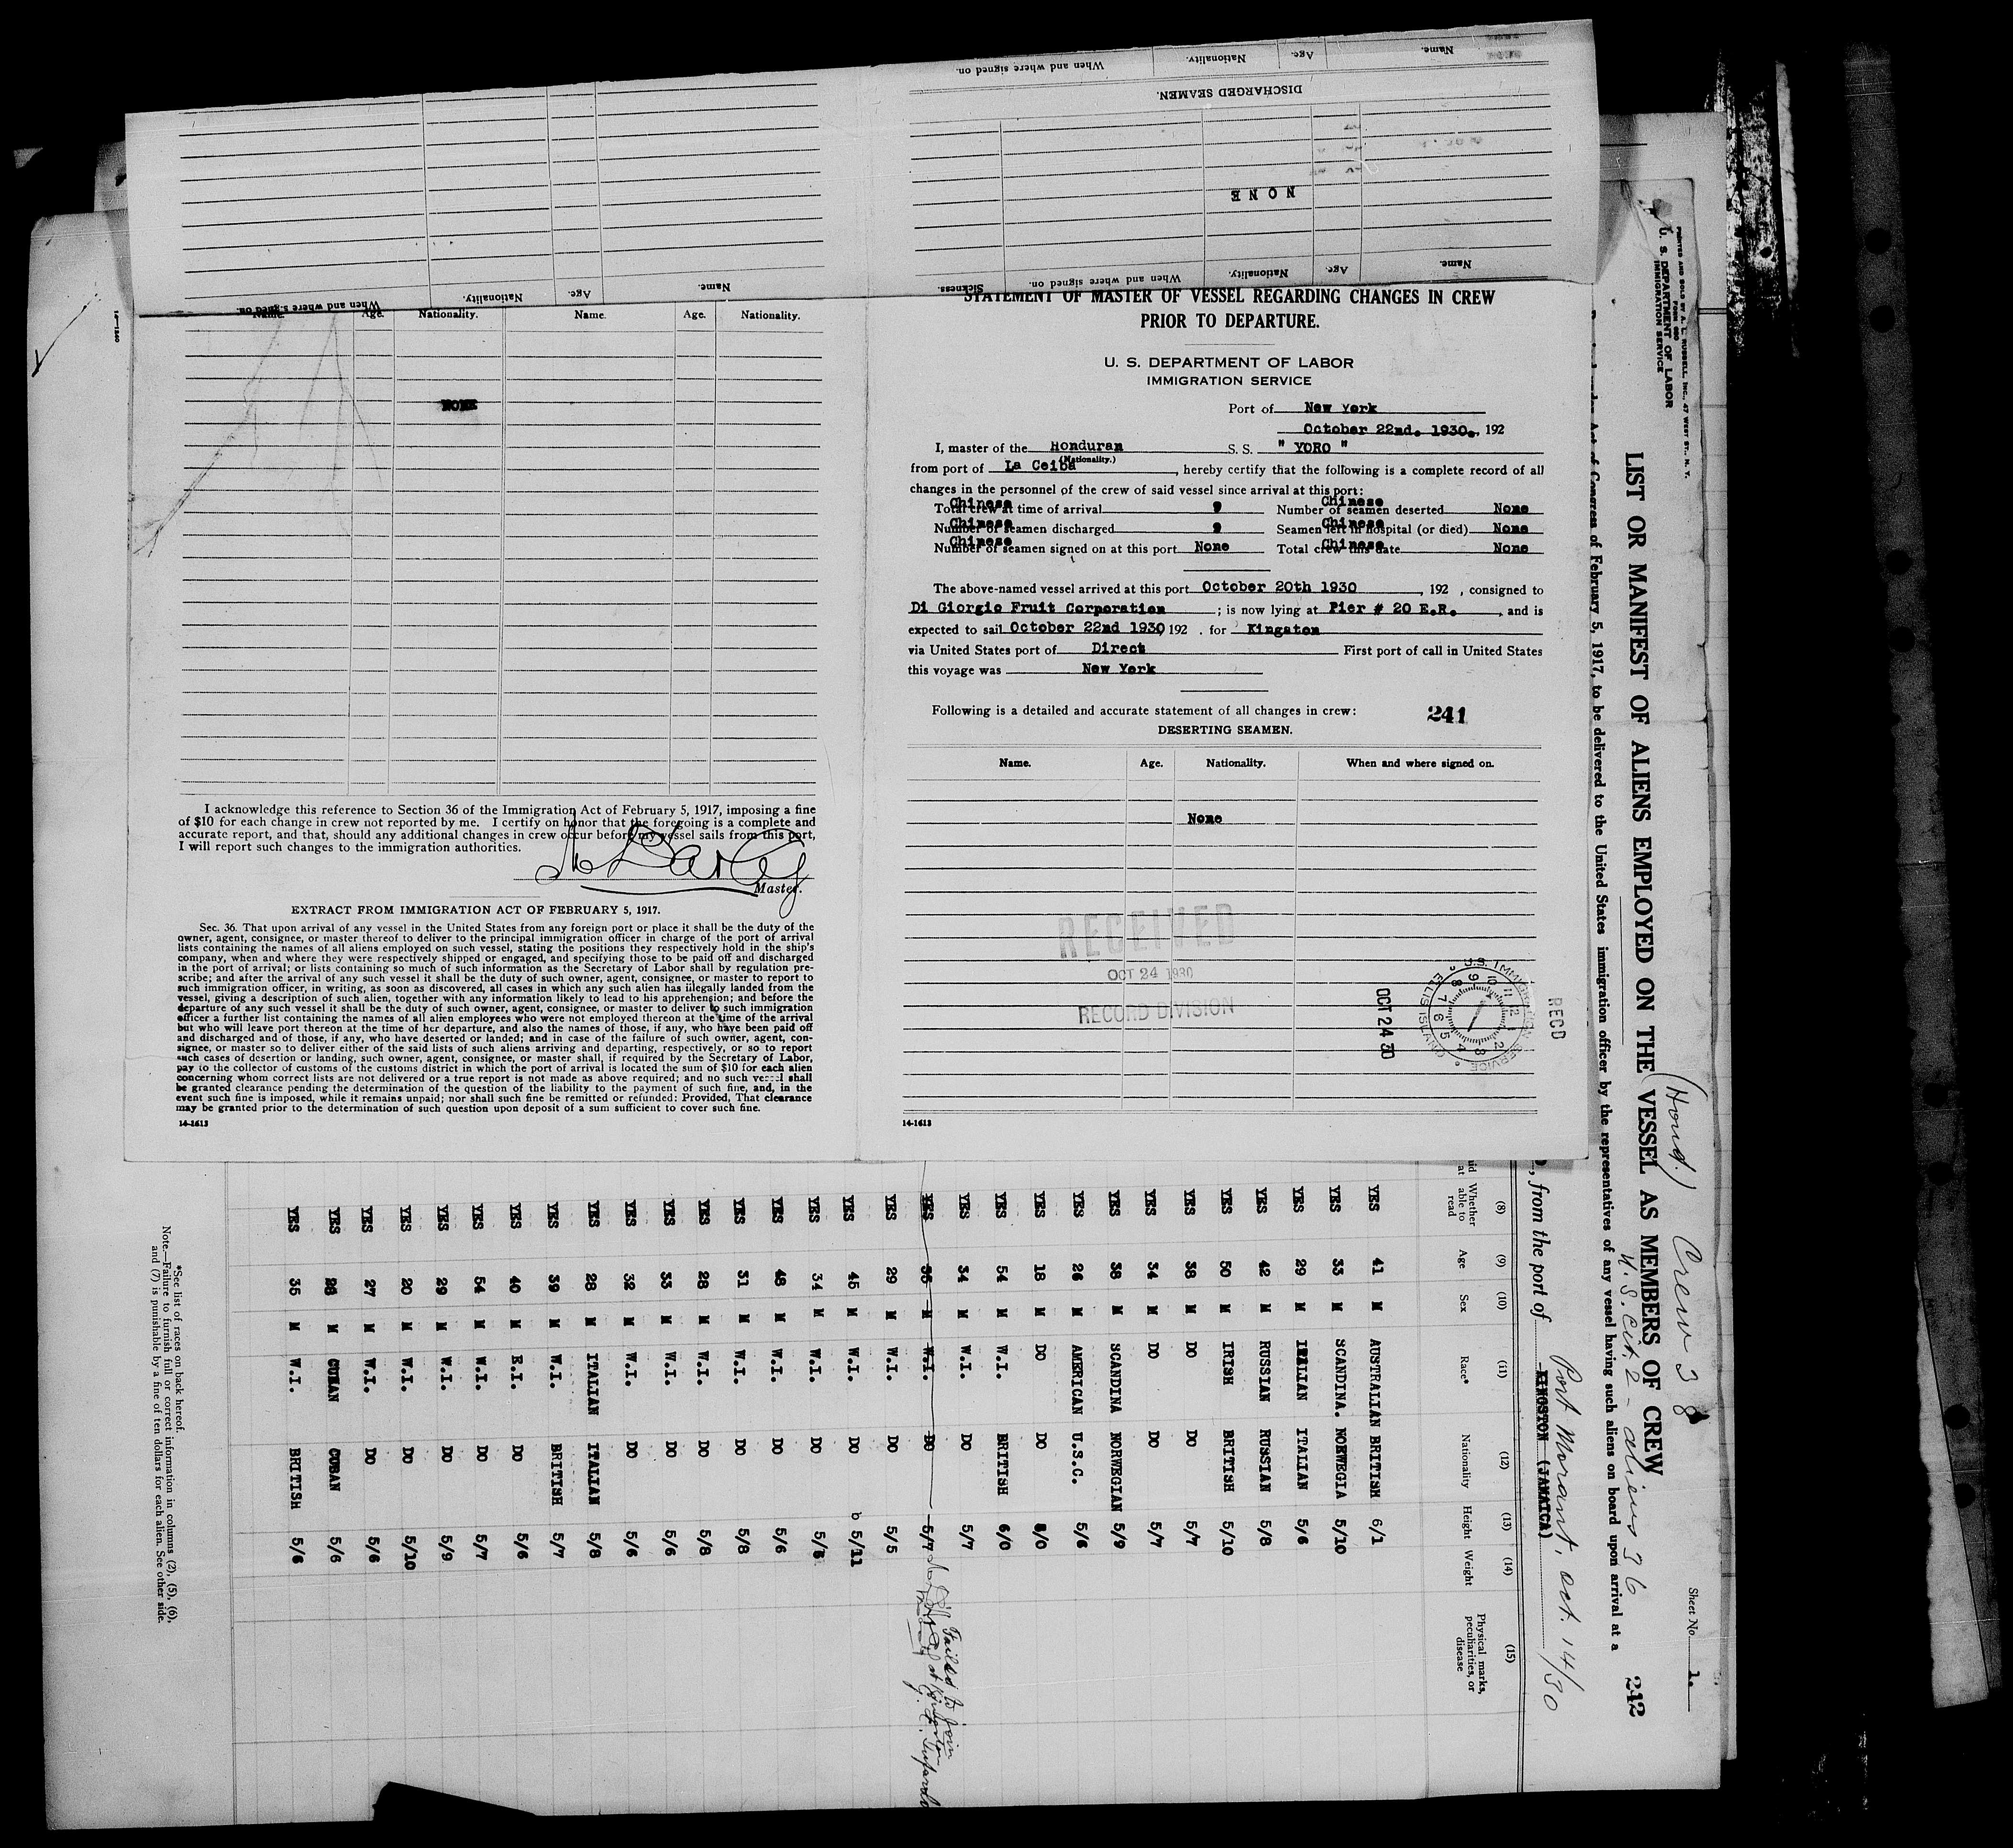 Name.
Age.
Nationality.
When and where signed on.
DISCHARGED SEAMEN.
NONE
Name.
Age.
Nationality.
When and where signed on.
Sickness.
Name.
Age.
Nationality.
When and where signed on.
Name. Age. Nationality. Name. Age. Nationality.
NONE
I acknowledge this reference to Section 36 of the Immigration Act of February 5, 1917, imposing a fine
of $10 for each change in crew not reported by me. I certify on honor that the foregoing is a complete and
accurate report, and that, should any additional changes in crew occur before my vessel sails from this port,
I will report such changes to the immigration authorities.
Master.
EXTRACT FROM IMMIGRATION ACT OF FEBRUARY 5, 1917.
Sec. 36. That upon arrival of any vessel in the United States from any foreign port or place it shall be the duty of the
owner, agent, consignee, or master thereof to deliver to the principal immigration officer in charge of the port of arrival
lists containing the names of all aliens employed on such vessel, stating the positions they respectively hold in the ship's
company, when and where they were respectively shipped or engaged, and specifying those to be paid off and discharged
in the port of arrival; or lists containing so much of such information as the Secretary of Labor shall by regulation pre-
scribe; and after the arrival of any such vessel it shall be the duty of such owner, agent, consignee, or master to report to
such immigration officer, in writing, as soon as discovered, all cases in which any such alien has illegally landed from the
vessel, giving a description of such alien, together with any information likely to lead to his apprehension; and before the
departure of any such vessel it shall be the duty of such owner, agent, consignee, or master to deliver to such immigration
officer a further list containing the names of all alien employees who were not employed thereon at the time of the arrival
but who will leave port thereon at the time of her departure, and also the names of those, if any, who have been paid off
and discharged and of those, if any, who have deserted or landed; and in case of the failure of such owner, agent, con-
signee, or master so to deliver either of the said lists of such aliens arriving and departing, respectively, or so to report
such cases of desertion or landing, such owner, agent, consignee, or master shall, if required by the Secretary of Labor,
pay to the collector of customs of the customs district in which the port of arrival is located the sum of $10 for each alien
concerning whom correct lists are not delivered or a true report is not made as above required; and no such vessel shall
be granted clearance pending the determination of the question of the liability to the payment of such fine, and, in the
event such fine is imposed, while it remains unpaid; nor shall such fine be remitted or refunded: Provided, That clearance
may be granted prior to the determination of such question upon deposit of a sum sufficient to cover such fine.
14-1613
STATEMENT OF MASTER OF VESSEL REGARDING CHANGES IN CREW
PRIOR TO DEPARTURE.
U. S. DEPARTMENT OF LABOR
IMMIGRATION SERVICE
Port of New York
October 22nd. 1930., 192
I, master of the Honduran S. S. " YORO "
(Nationality.)
from port of La Ceiba, hereby certify that the following is a complete record of all
changes in the personnel of the crew of said vessel since arrival at this port:
Chinese Chinese
Total crew at time of arrival 9 Number of seamen deserted None
Chinese Chinese
Number of seamen discharged 9 Seamen left in hospital (or died) None
Chinese Chinese
Number of seamen signed on at this port None Total crew this date None
The above-named vessel arrived at this port October 20th 1930, 192 , consigned to
Di Giorgio Fruit Corporation; is now lying at Pier # 20 E.R., and is
expected to sail October 22nd 1930 192 . for Kingston
via United States port of Direct First port of call in United States
this voyage was New York
Following is a detailed and accurate statement of all changes in crew: 241
DESERTING SEAMEN.
Name. Age. Nationality. When and where signed on.
None
RECEIVED
OCT 24 1930
RECORD DIVISION
OCT 24 30
U.S. IMMIGRATION SERVICE
ELLIS ISLAND
RECD
14-1613
PRINTED AND SOLD BY A. L. RUSSELL, INC., 47 WEST ST., N. Y.
U. S. DEPARTMENT OF LABOR
IMMIGRATION SERVICE
(Hond.) Crew 38
Sheet No. 1.
LIST OR MANIFEST OF ALIENS EMPLOYED ON THE VESSEL AS MEMBERS OF CREW
U.S. Cit. 2 - aliens 36
242
Act of Congress of February 5, 1917, to be delivered to the United States immigration officer by the representatives of any vessel having such aliens on board upon arrival at a
Port Morant, Oct. 14/30
, from the port of KINGSTON (JAMAICA)
(8) (9) (10) (11) (12) (13) (14) (15)
Whether able to read Age Sex Race* Nationality Height Weight Physical marks, peculiarities, or disease
YES 41 M AUSTRALIAN BRITISH 6/1
YES 33 M SCANDINA. NORWEGIA 5/10
YES 29 M ITALIAN ITALIAN 5/6
YES 42 M RUSSIAN RUSSIAN 5/8
YES 50 M IRISH BRITISH 5/10
YES 38 M DO DO 5/7
YES 34 M DO DO 5/7
YES 38 M SCANDINA NORWEGIAN 5/9
YES 26 M AMERICAN U.S.C. 5/6
YES 18 M DO DO
YES 54 M W.I. BRITISH 6/0
YES 34 M W.I. DO 5/7
YES 36 M W.I. DO 5/7 Failed to join
YES 29 M W.I. DO 5/5
YES 45 M W.I. DO 5/11
YES 34 M W.I. DO
YES 48 M W.I. DO 5/6
YES 31 M W.I. DO 5/8
YES 28 M W.I. DO 5/8
YES 33 M W.I. DO 5/6
YES 32 M W.I. DO 5/6
YES 28 M ITALIAN ITALIAN 5/8
YES 39 M W.I. BRITISH 5/7
YES 40 M E.I. DO 5/6
YES 54 M W.I. DO 5/7
YES 29 M W.I. DO 5/9
YES 20 M W.I. DO 5/10
YES 27 M W.I. DO 5/6
YES M CUBAN CUBAN 5/6
YES 35 M W.I. BRITISH 5/6
*See list of races on back hereof.
Note.—Failure to furnish full or correct information in columns (2), (5), (6),
and (7) is punishable by a fine of ten dollars for each alien. See other side.